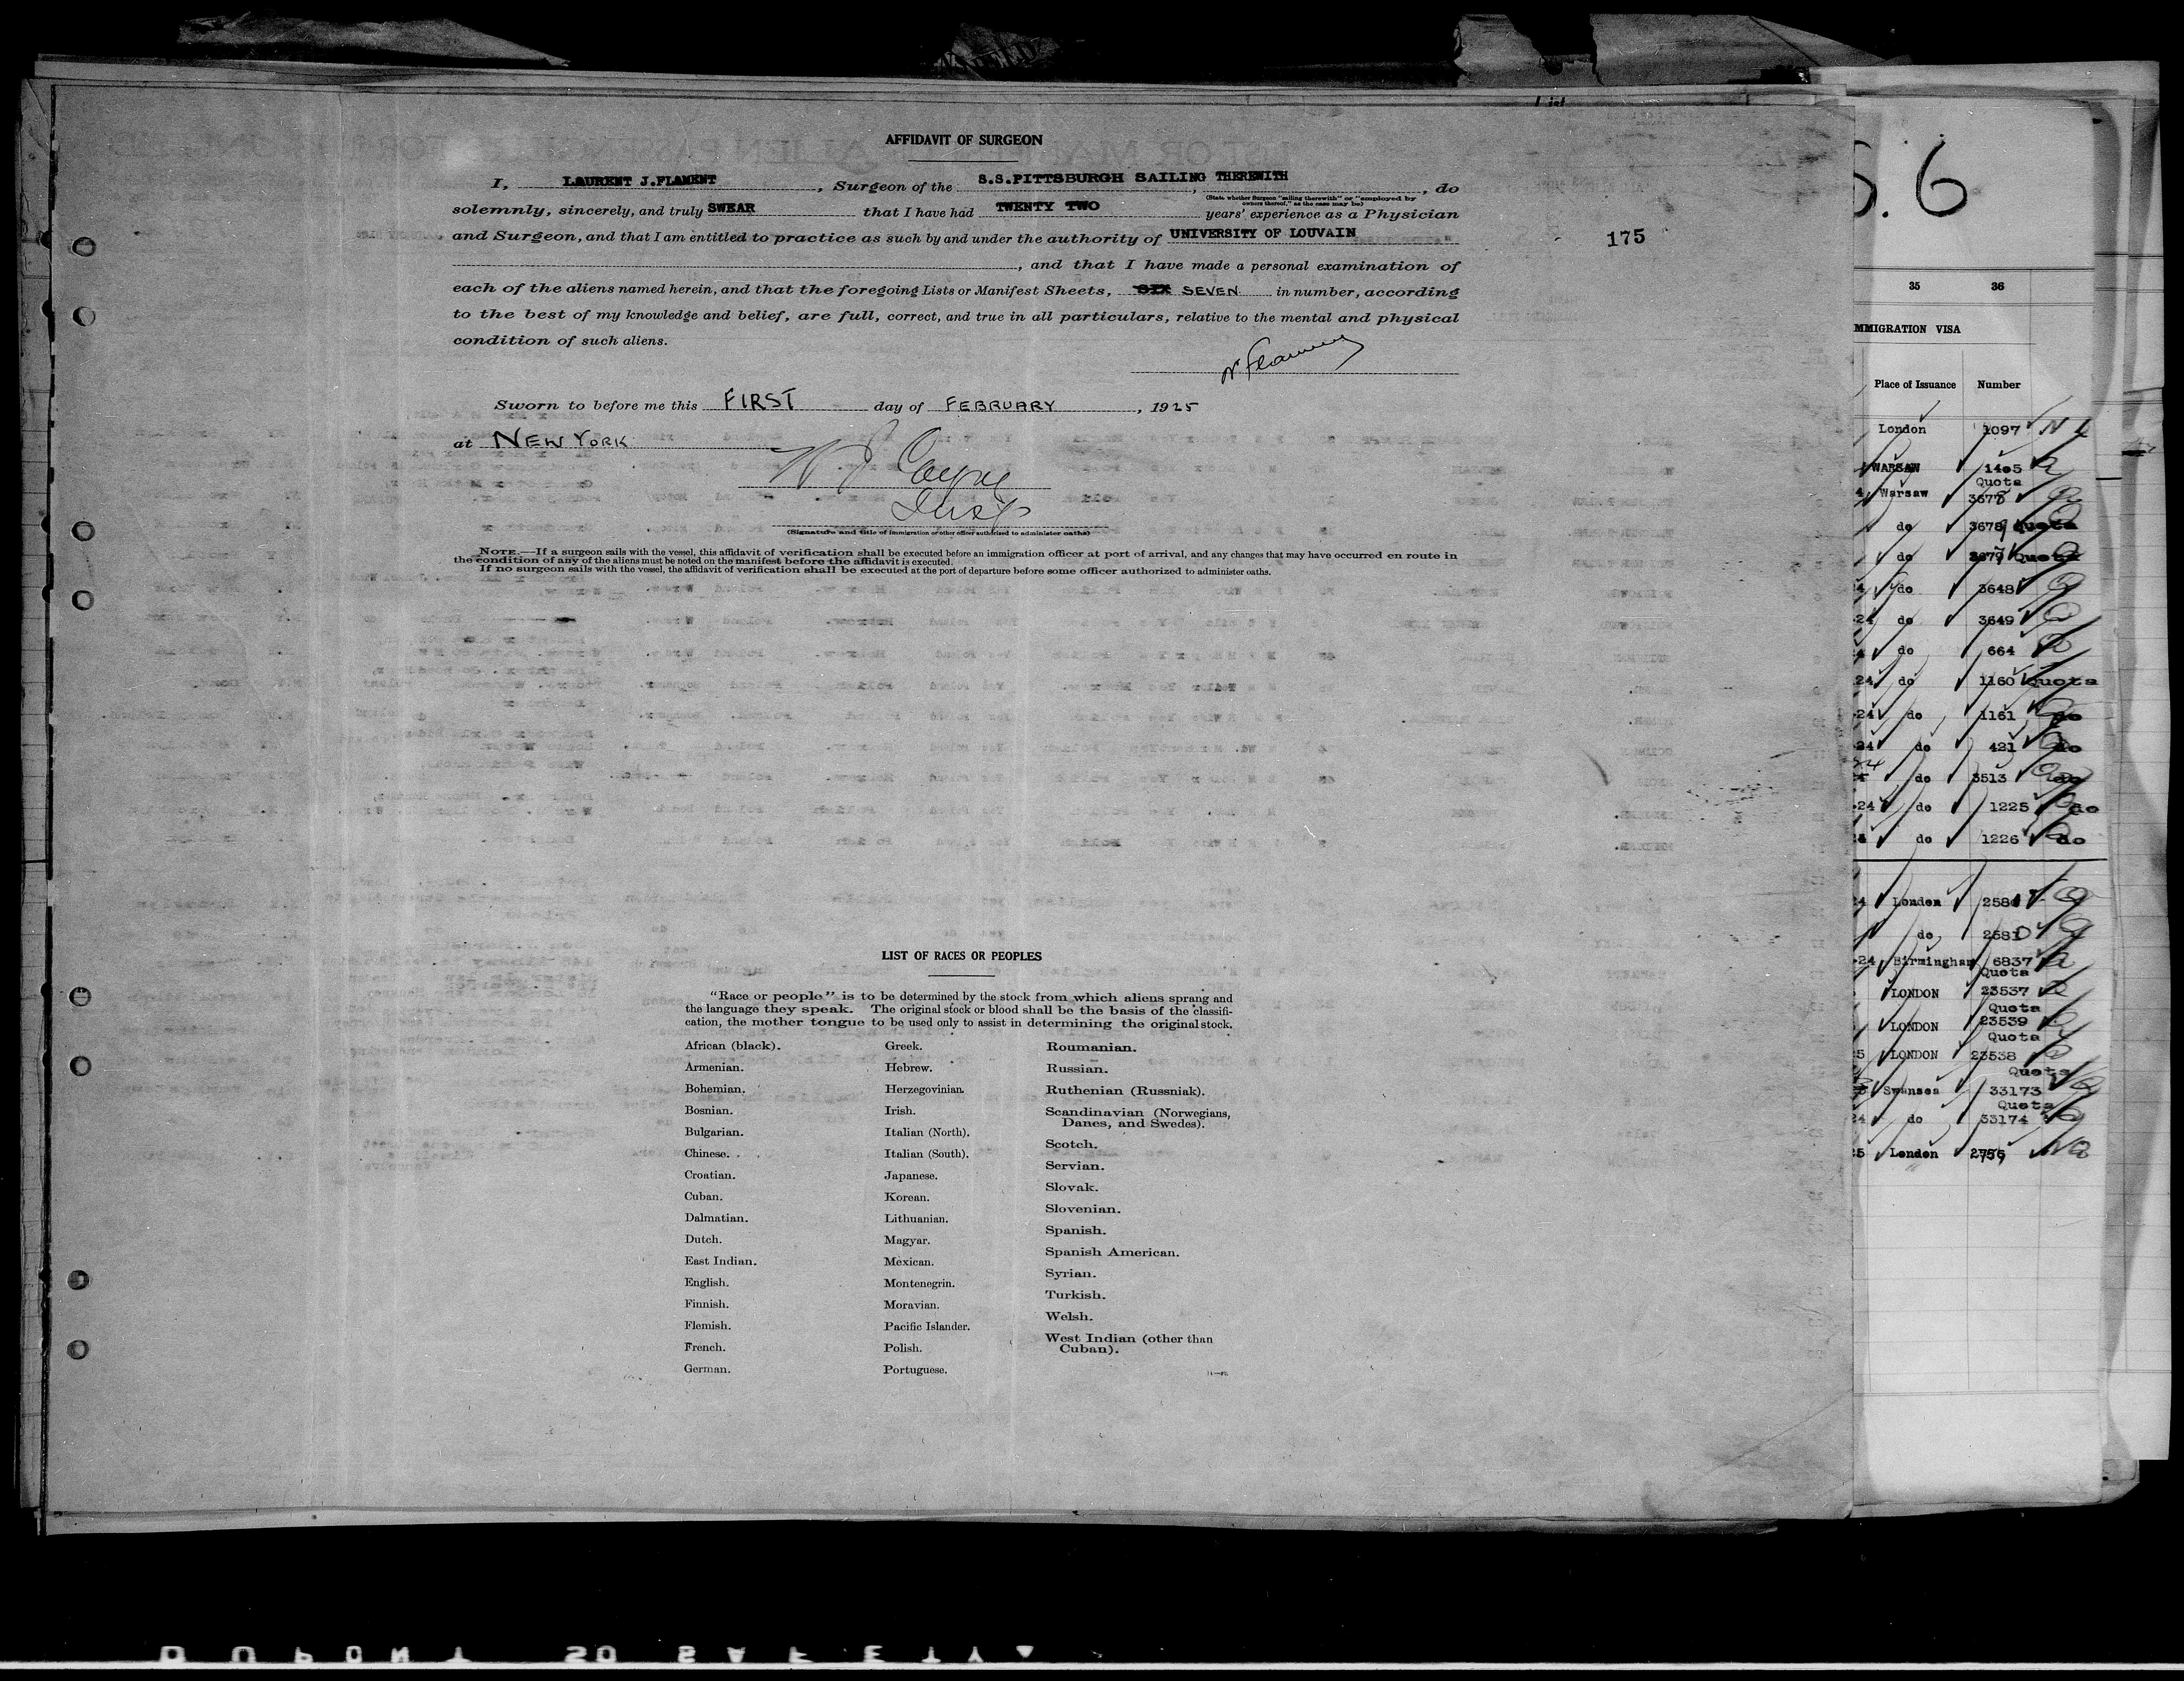 AFFIDAVIT OF SURGEON
I, LAURENT J.FLAMENT, Surgeon of the S.S.PITTSBURGH SAILING THEREWITH, do
(State whether Surgeon "sailing therewith" or "employed by
owners thereof," as the case may be)
solemnly, sincerely, and truly SWEAR that I have had TWENTY TWO years' experience as a Physician
and Surgeon, and that I am entitled to practice as such by and under the authority of UNIVERSITY OF LOUVAIN
, and that I have made a personal examination of
each of the aliens named herein, and that the foregoing Lists or Manifest Sheets, SIX SEVEN in number, according
to the best of my knowledge and belief, are full, correct, and true in all particulars, relative to the mental and physical
condition of such aliens.
Sworn to before me this FIRST day of FEBRUARY, 1925
at NEW YORK
Insp
(Signature and title of immigration or other officer authorized to administer oaths)
NOTE.—If a surgeon sails with the vessel, this affidavit of verification shall be executed before an immigration officer at port of arrival, and any changes that may have occurred en route in
the condition of any of the aliens must be noted on the manifest before the affidavit is executed.
If no surgeon sails with the vessel, the affidavit of verification shall be executed at the port of departure before some officer authorized to administer oaths.
175
LIST OF RACES OR PEOPLES
"Race or people" is to be determined by the stock from which aliens sprang and
the language they speak. The original stock or blood shall be the basis of the classifi-
cation, the mother tongue to be used only to assist in determining the original stock.
African (black).
Armenian.
Bohemian.
Bosnian.
Bulgarian.
Chinese.
Croatian.
Cuban.
Dalmatian.
Dutch.
East Indian.
English.
Finnish.
Flemish.
French.
German.
Greek.
Hebrew.
Herzegovinian.
Irish.
Italian (North).
Italian (South).
Japanese.
Korean.
Lithuanian.
Magyar.
Mexican.
Montenegrin.
Moravian.
Pacific Islander.
Polish.
Portuguese.
Roumanian.
Russian.
Ruthenian (Russniak).
Scandinavian (Norwegians,
Danes, and Swedes).
Scotch.
Servian.
Slovak.
Slovenian.
Spanish.
Spanish American.
Syrian.
Turkish.
Welsh.
West Indian (other than
Cuban).
6
35 36
MMIGRATION VISA
Place of Issuance Number
London 1097
WARSAW 1405
Quota
Warsaw 3677
do 3678 Quota
do 3679 Quota
do 3648
24 do 3649
do 664
24 do 1160 Quota
24 do 1161 do
24 do 421 do
do 3513 do
24 do 1225 do
do 1226 do
24 London
do
24 Birmingham 6837
Quota
LONDON 23537
Quota
LONDON 23539
Quota
5 LONDON 23538
Quota
Swansea 33173
Quota
24 do 33174
5 London
DUPONT SAFETY